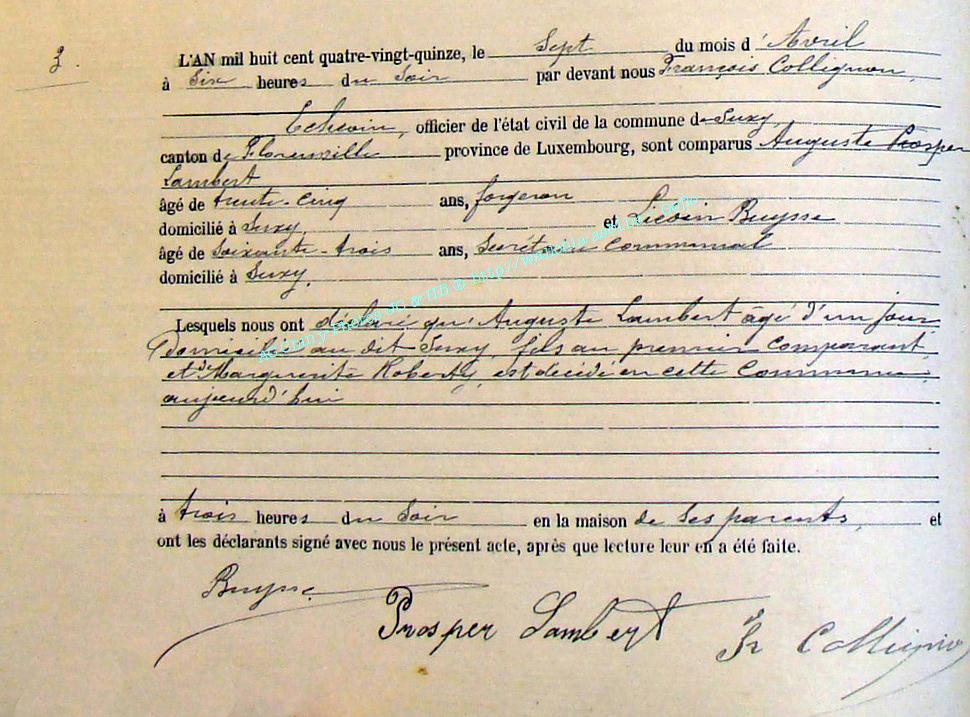 3.
L'AN mil huit cent quatre-vingt-quinze, le Sept du mois d'Avril
à Six heures du Soir par devant nous François Collignon,
Echevin, officier de l'état civil de la commune de Suxy,
canton de Florenville province de Luxembourg, sont comparus Auguste Prosper
Lambert
âgé de trente-cinq ans, forgeron
domicilié à Suxy, et Liévin Buysse
âgé de Soixante-trois ans, Secrétaire Communal
domicilié à Suxy.
Lesquels nous ont déclaré qu'Auguste Lambert âgé d'un jour
Domicilié au dit Suxy, fils au premier comparant,
et d'Marguerite Roberty, est décédé en cette Commune,
aujourd'hui
à trois heures du Soir en la maison de ses parents, et
ont les déclarants signé avec nous le présent acte, après que lecture leur en a été faite.
Buysse
Prosper Lambert
Fr Collignon